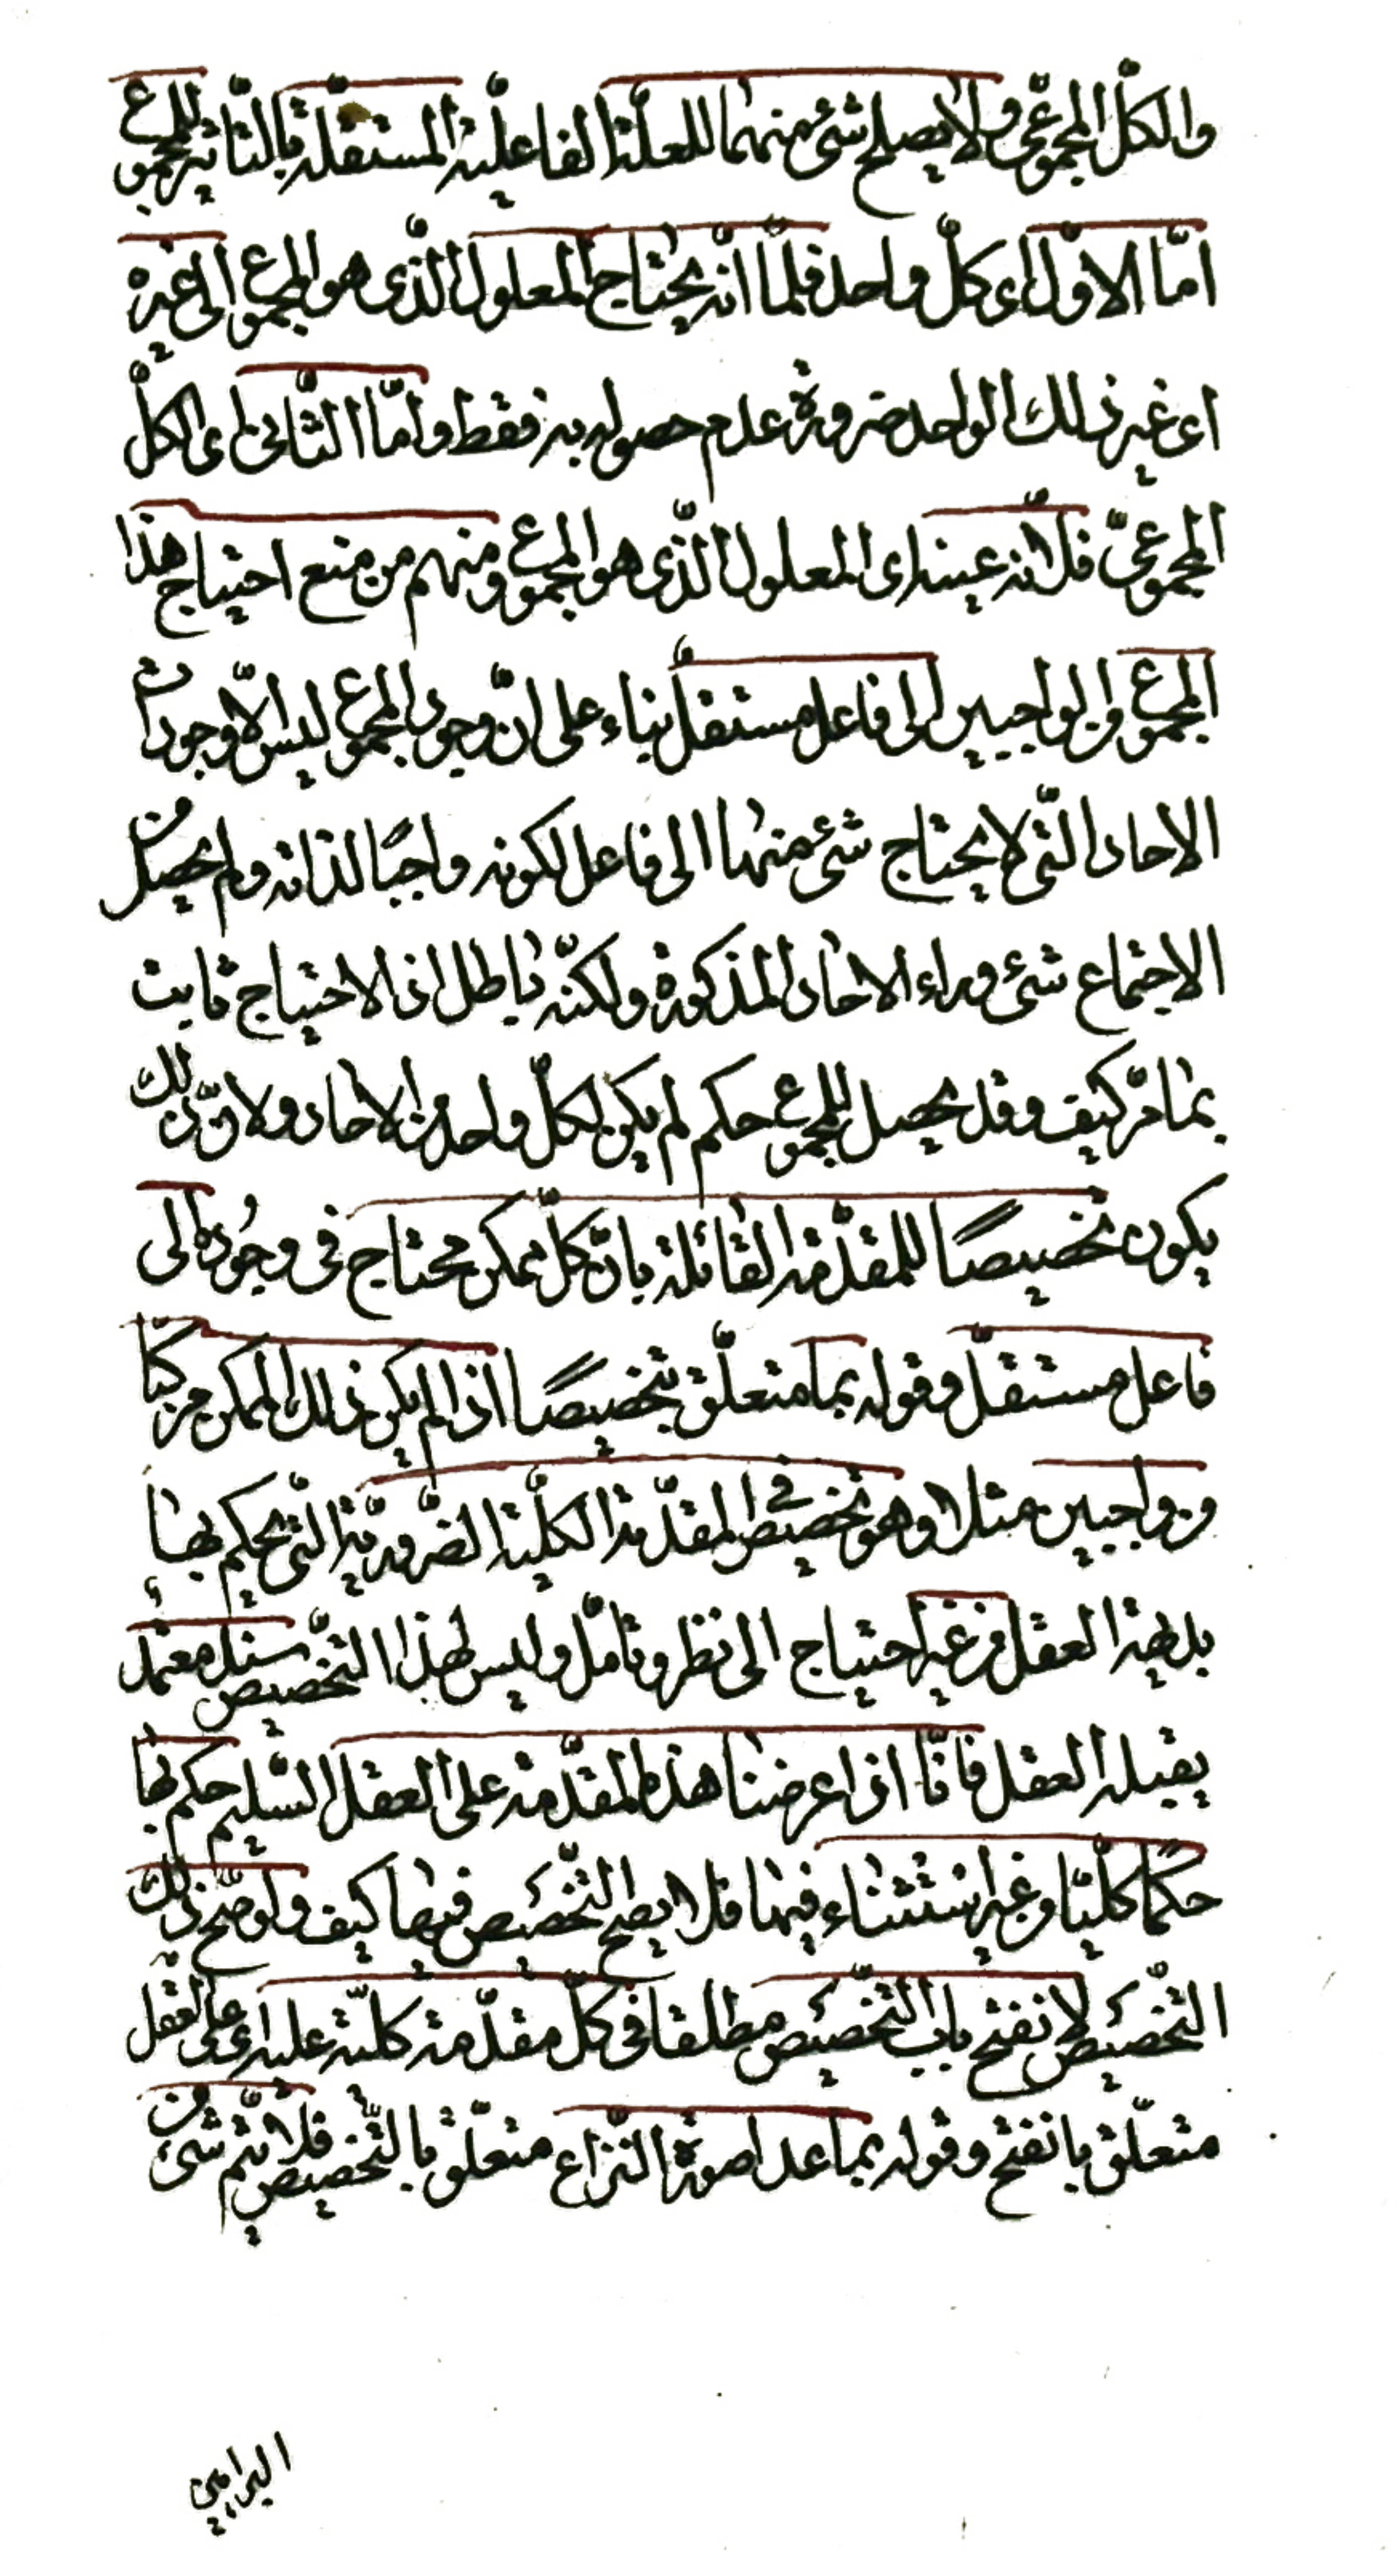 والكلّ المجموعىّ ولا يصلح شئ منهما للعلّة الفاعليّة المستقلّة بالتّأثير للمجموع
امّا الاوّل اى كلّ واحد فلما انّه يحتاج المعلول الّذى هو المجموع الى غيره
اى غير ذلك الواحد ضرورة عدم حصوله به فقط وامّا الثّانى اى الكلّ
المجموعىّ فلانّه عينه اى المعلول الّذى هو المجموع ومنهم من منع احتياج هذا
المجموع من الواجبين الى فاعل مستقلّ بناء على انّ وجود المجموع ليس الاّ وجودات
الاحاد الّتى لا يحتاج شئ منها الى فاعل لكونه واجبًا لذاته ولم يحصل من
الاجتماع شئ وراء الاحاد المذكورة ولكنّه باطل اذ الاحتياج ثابت
بما مرّ كيف وقد يحصل للمجموع حكم لم يكن لكلّ واحد من الاحاد ولانّ ذلك
يكون تخصيصًا للمقدّمة القائلة بانّ كلّ ممكن محتاج فى وجُوده الى
فاعل مستقلّ وقوله بما متعلّق بتخصيصًا اذا لم يكن ذلك الممكن مركبًا
من واجبين مثلا وهو تخصيص فى المقدّمة الكلّيّة الضّروريّة الّتى يحكم بها
بداهة العقل من غير احتياج الى نظر وتامّل وليس لهذا التّخصيص سند معتمد
يقبله العقل فانّا اذا عرضنا هذه المقدّمة على العقل السّليم حكم بها
حكمًا كلّيّا من غير استثناء فيها فلا يصح التّخصيص فيها كيف ولو صحّ ذلك
التّخصيص لانفتح باب التّخصيص مطلقا فى كلّ مقدّمة كلّيّة عليه اى على العقل
متعلّق بانفتح وقوله بما عدا صورة النّزاع متعلّق بالتّخصيص فلا يتمّ شئ من
البراهين